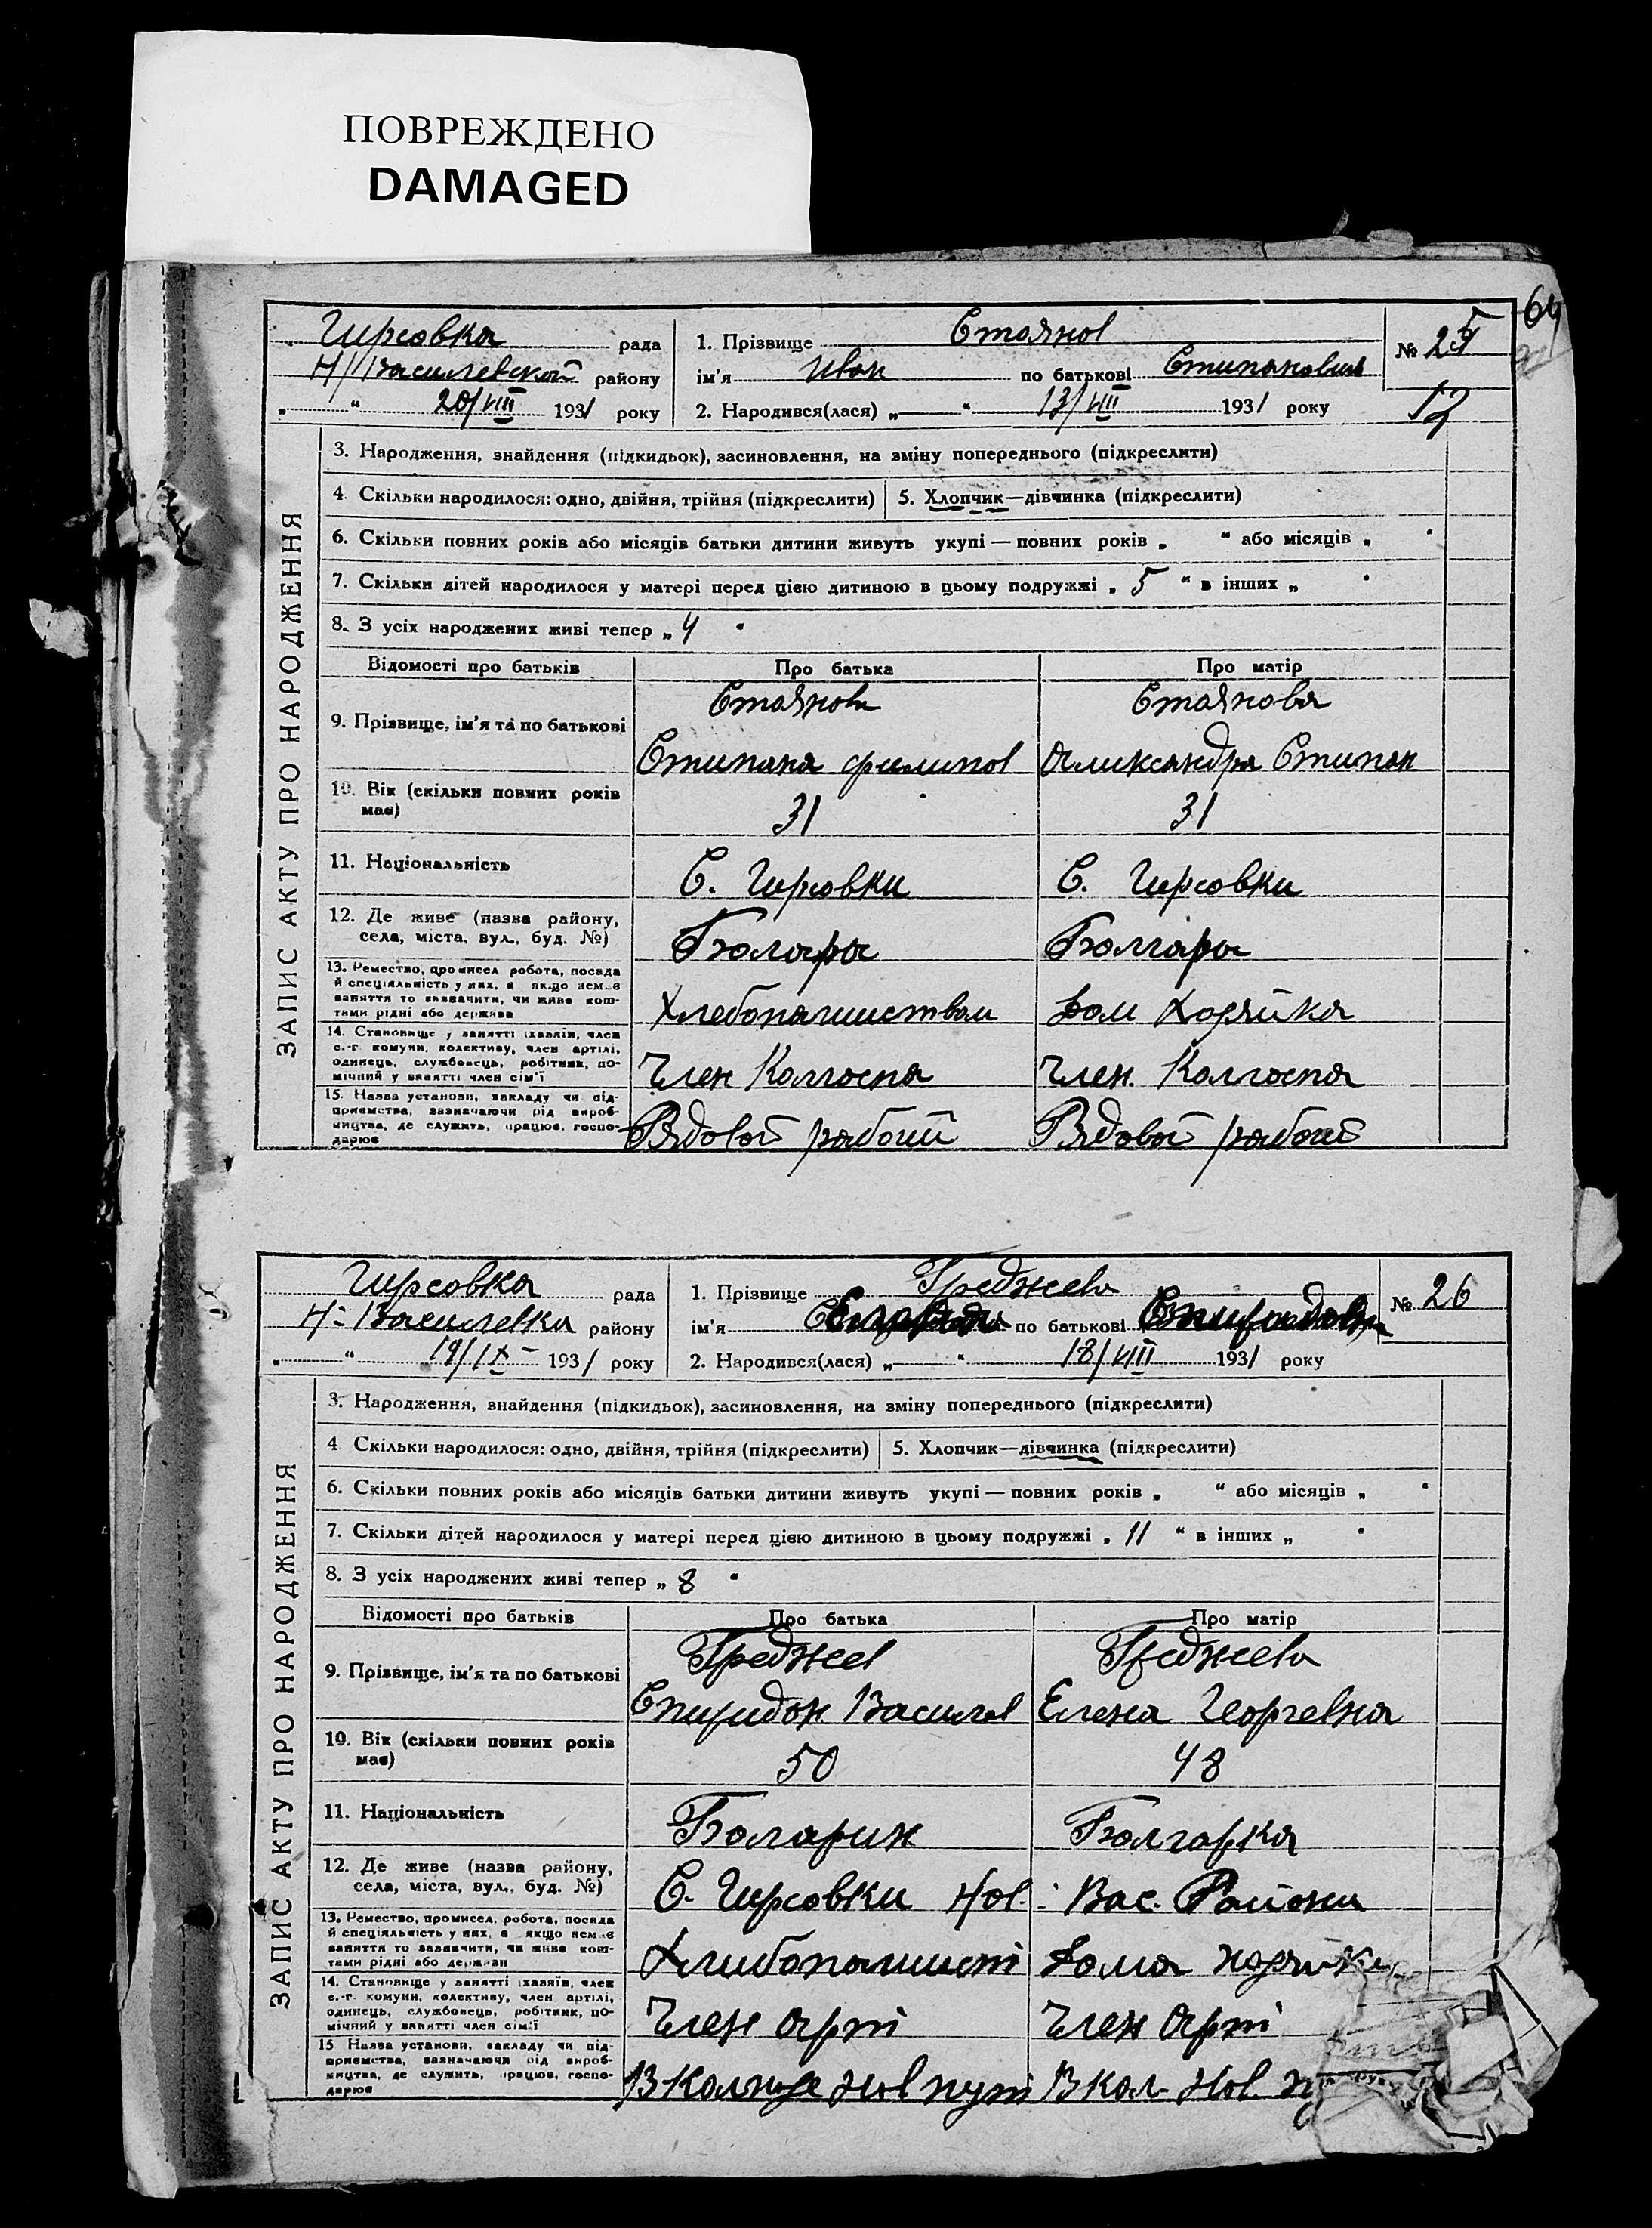 ПОВРЕЖДЕНО
DAMAGED
64
Гирсовка рада
Н/Василевской району
„ “ 20/VIII 1931 року
1. Прізвище Стоянов
ім'я Иван по батькові Стипанович
2. Народився(лася) „ “ 13/VIII 1931 року
№ 25
12
ЗАПИС АКТУ ПРО НАРОДЖЕННЯ
3. Народження, знайдення (підкидьок), засиновлення, на зміну попереднього (підкреслити)
4. Скільки народилося: одно, двійня, трійня (підкреслити) 5. Хлопчик—дівчинка (підкреслити)
6. Скільки повних років або місяців батьки дитини живуть укупі — повних років „ “ або місяців „ “
7. Скільки дітей народилося у матері перед цією дитиною в цьому подружжі „ 5 “ в інших „ “
8. З усіх народжених живі тепер „ 4 “
Відомості про батьків Про батька Про матір
9. Прізвище, ім'я та по батькові
Стоянов Стоянова
Стипана филипов Александра Стипан
10. Вік (скільки повних років має) 31 31
11. Національність С. Гирсовки С. Гирсовки
12. Де живе (назва району, села, міста, вул., буд. №) Болгары Болгары
13. Ремество, промисел робота, посада й спеціяльність у них, а якщо немає заняття то зазначити, чи живе коштами рідні або держава Хлебопашиством Дом Хозяйка
14. Становище у занятті (хазяїн, член с.-г. комуни, колективу, член артілі, одинець, службовець, робітник, помічний у занятті член сім'ї Член Колгоспа Член. Колгоспа
15. Назва установи, закладу чи підприємства, зазначаючи рід виробництва, де служить, працює, господарює Рядовой рабочий Рядовой рабочий
Гирсовка рада
Н-Василевки району
„ “ 19/IX 1931 року
1. Прізвище Греджева
ім'я по батькові Спиридовна
2. Народився(лася) „ “ 18/VIII 1931 року
№ 26
ЗАПИС АКТУ ПРО НАРОДЖЕННЯ
3. Народження, знайдення (підкидьок), засиновлення, на зміну попереднього (підкреслити)
4 Скільки народилося: одно, двійня, трійня (підкреслити) 5. Хлопчик—дівчинка (підкреслити)
6. Скільки повних років або місяців батьки дитини живуть укупі — повних років „ “ або місяців „ “
7. Скільки дітей народилося у матері перед цією дитиною в цьому подружжі „ 11 “ в інших „ “
8. З усіх народжених живі тепер „ 8 “
Відомості про батьків Про батька Про матір
9. Прізвище, ім'я та по батькові
Греджев Греджева
Спиридон Василев Елена Георгевна
10. Вік (скільки повних років має) 50 48
11. Національність Боларин Болгарка
12. Де живе (назва району, села, міста, вул., буд. №) С. Гирсовки Нов. Вас. Района
13. Ремество, промисел, робота, посада й спеціяльність у них, а якщо немає заняття то зазначити, чи живе коштами рідні або держави Хлибопашист Дома хозяйка
14. Становище у занятті (хазяїн, член с.-г. комуни, колективу, член артілі, одинець, службовець, робітник, помічний у занятті член сім'ї Член Арт Член Арт
15 Назва установи, закладу чи підприємства, зазначаючи рід виробництва, де служить, працює, господарює Нов пут В Кол. Нов.